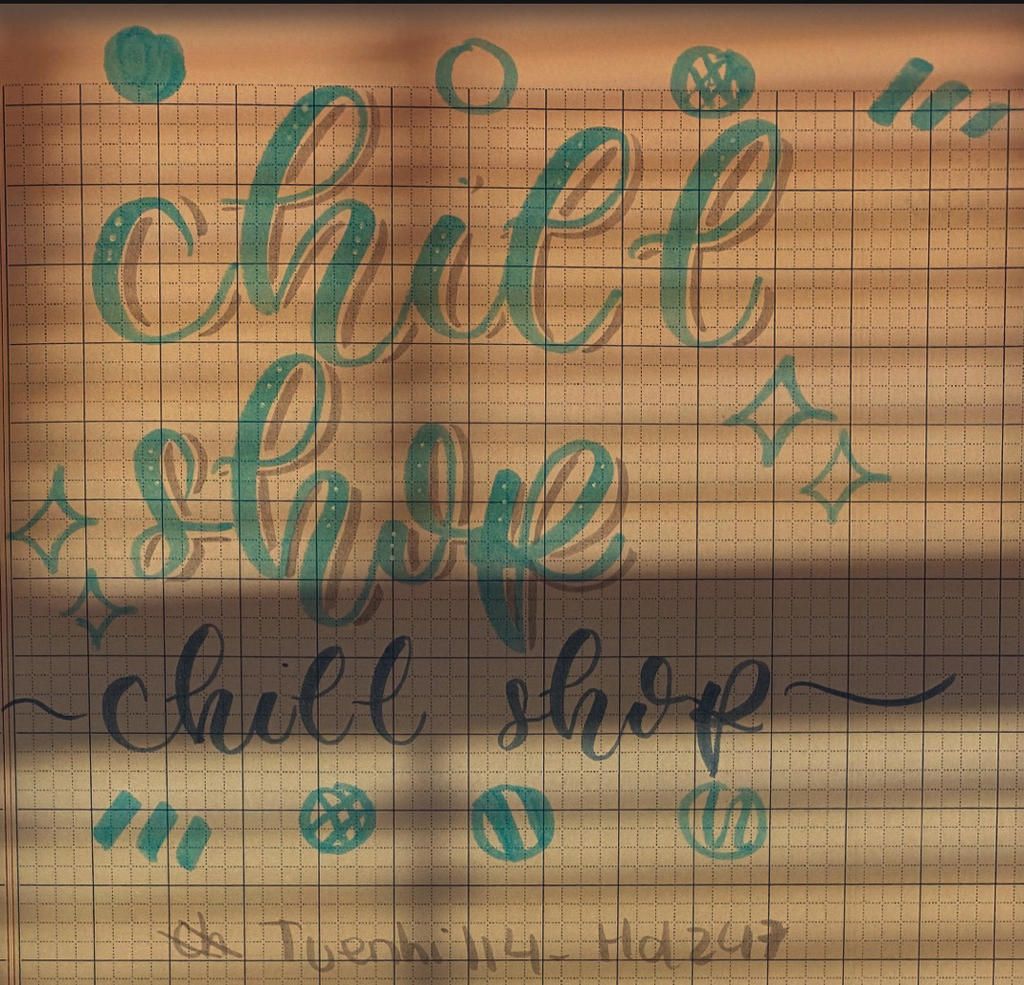 chill
shop
chill shop
Tuenhi 114 - Hd247